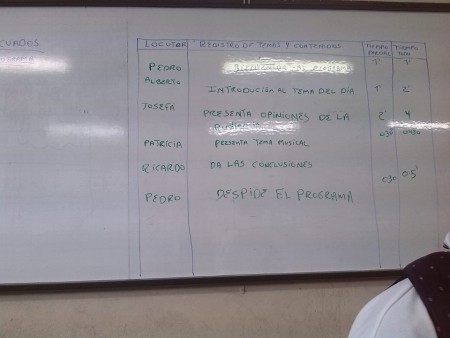 CUADOS
LOCUTOR REGISTRO DE TEMAS Y CONTENIDOS TIEMPO PARCIAL TIEMPO
PEDRO 1' 1'
ALBERTO INTRODUCIÓN AL TEMA DEL DÍA 1' 2'
JOSEFA PRESENTA OPINIONES DE LA 2' 4
030
PATRICIA PRESENTA TEMA MUSICAL
RICARDO DA LAS CONCLUSIONES
030 05'
PEDRO DESPIDE EL PROGRAMA